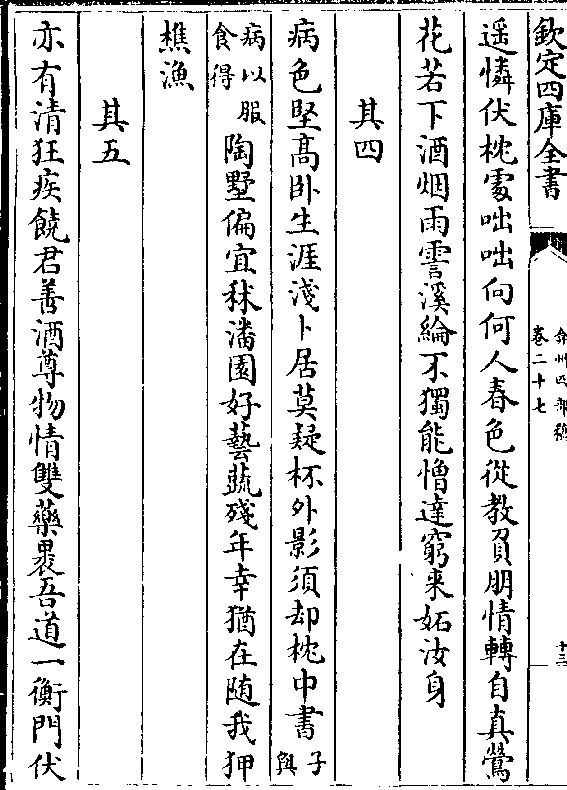 欽定四庫全書
弇州四部稿
卷二十七
十三
遥憐伏枕處咄咄向何人春色從教負朋情轉自真鶯
花若下酒烟雨霅溪綸不獨能憎達窮来妬汝身
其四
病色堅髙卧生涯淺卜居莫疑杯外影須却枕中書子與
病以服食得陶墅偏宜秫潘園好藝蔬殘年幸猶在随我狎
樵漁
其五
亦有清狂疾饒君善酒尊物情雙藥裹吾道一衡門伏